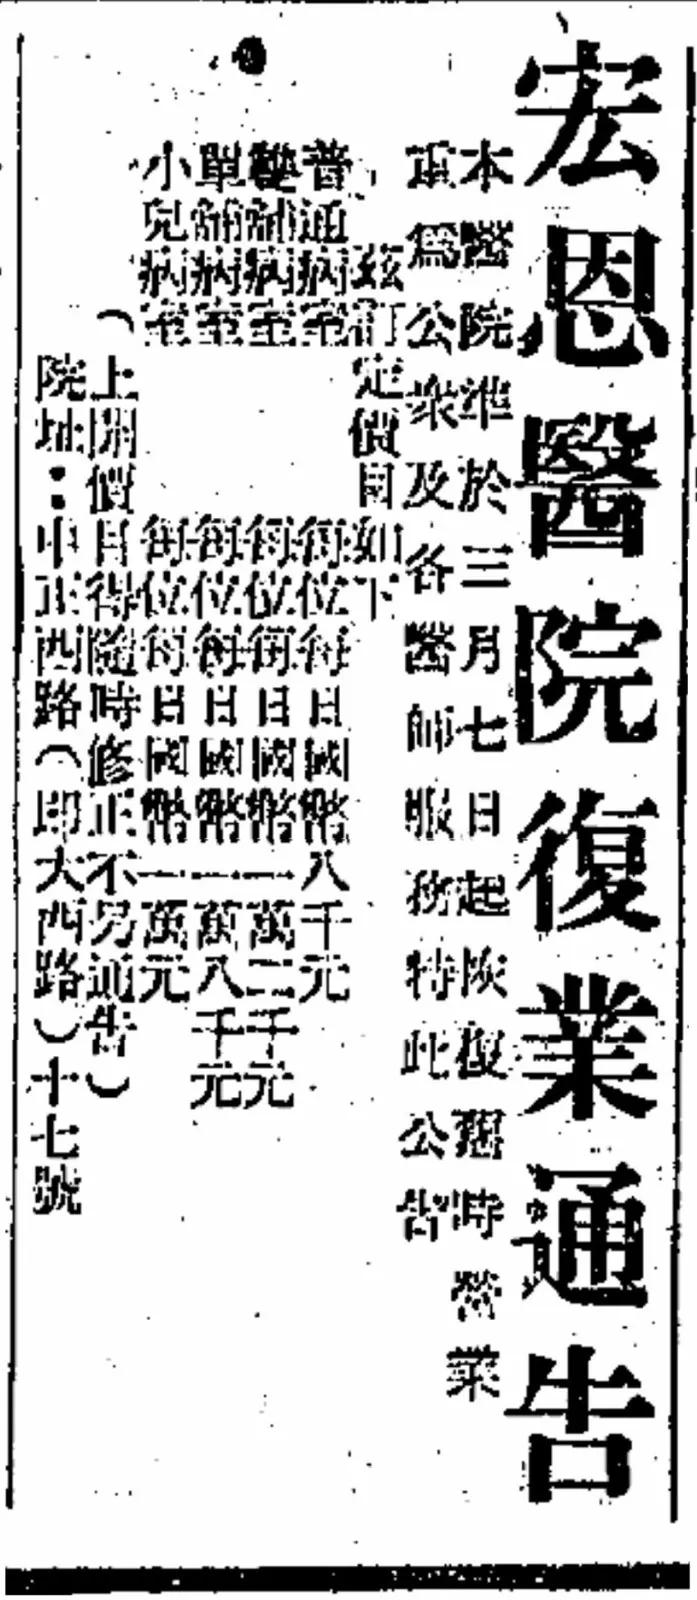 宏恩醫院復業通告
本醫院準於三月七日起恢復舊時營業
重為公衆及各醫師服務特此公告
茲訂定價目如下
普通病室 每位每日國幣八千元
雙舖病室 每位每日國幣一萬二千元
單舖病室 每位每日國幣一萬八千元
小兒病室 每位每日國幣一萬元
(上開價目得隨時修正不另通告)
院址：中正西路(即大西路)十七號